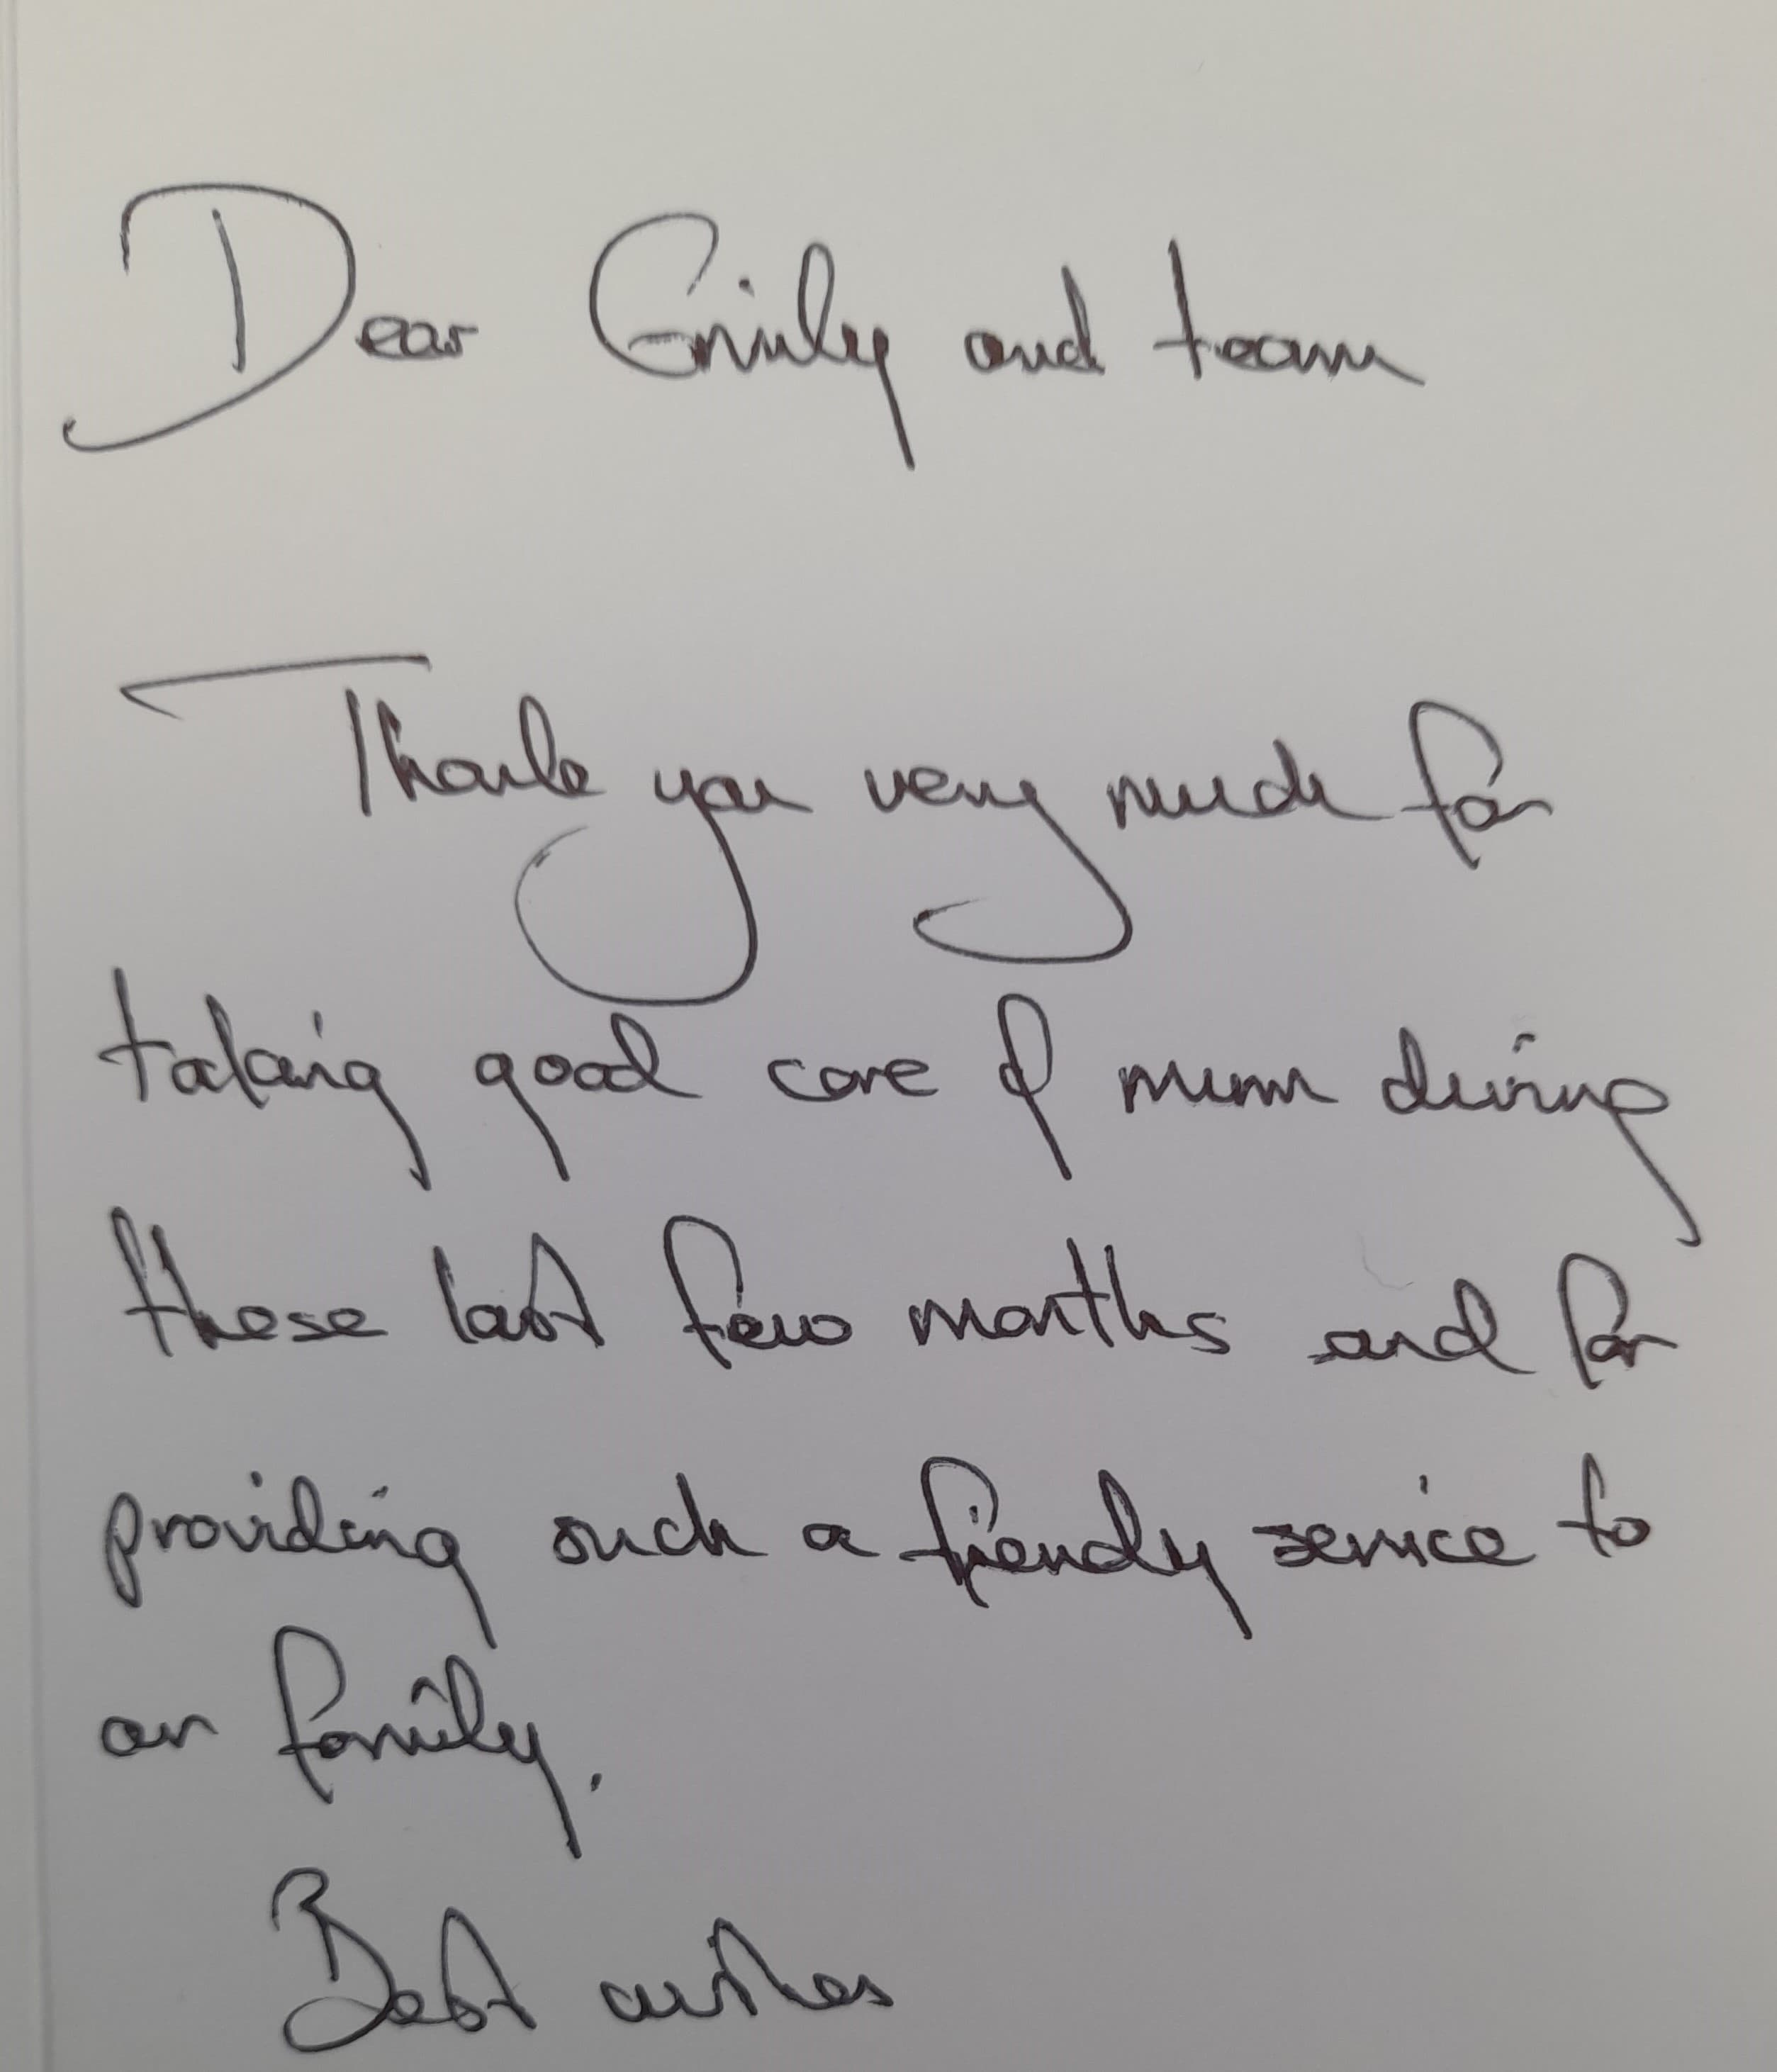 Dear Emily and team
Thank you very much for
taking good care of mum during
these last few months and for
providing such a friendly service to
our family.
Best wishes